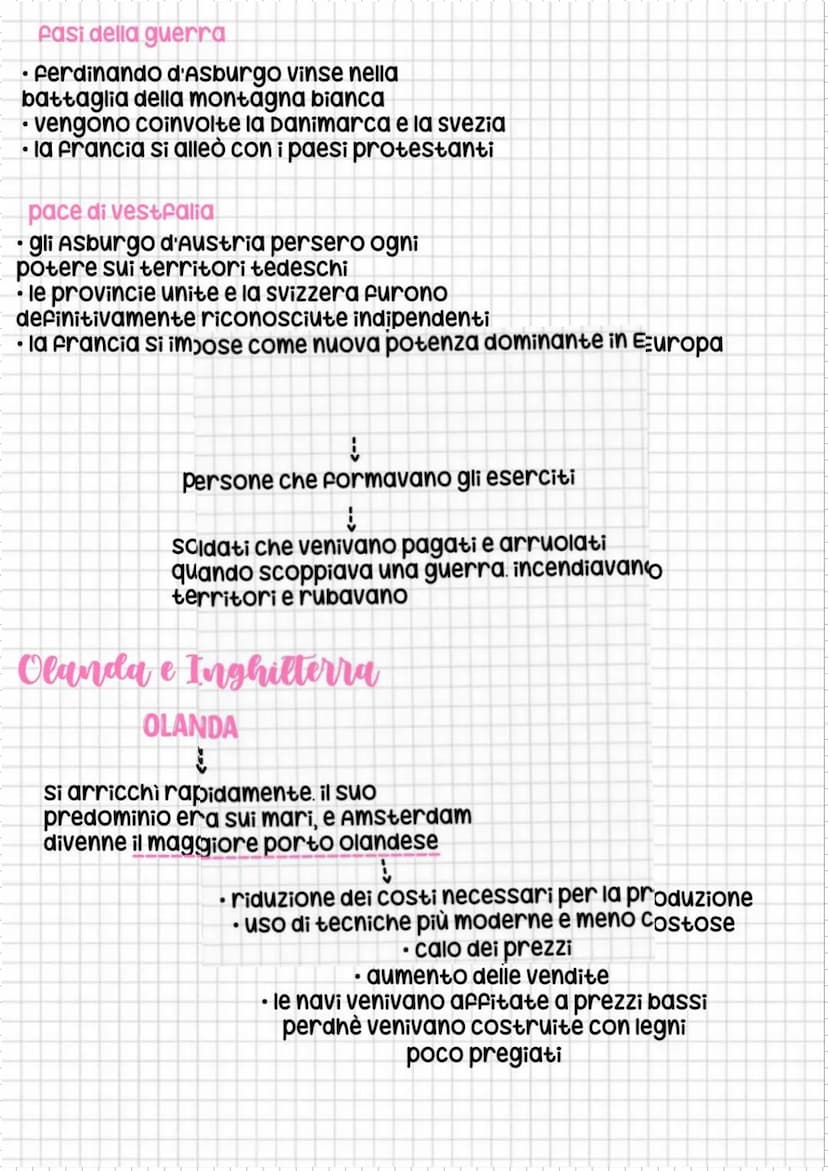 fasi della guerra
• ferdinando d'Asburgo vinse nella
battaglia della montagna bianca
• vengono coinvolte la Danimarca e la svezia
• la francia si alleò con i paesi protestanti
pace di vestfalia
• gli Asburgo d'Austria persero ogni
potere sui territori tedeschi
• le provincie unite e la svizzera furono
definitivamente riconosciute indipendenti
• la francia si impose come nuova potenza dominante in Europa
persone che formavano gli eserciti
soldati che venivano pagati e arruolati
quando scoppiava una guerra. incendiavano
territori e rubavano
Olanda e Inghilterra
OLANDA
si arricchì rapidamente. il suo
predominio era sui mari, e Amsterdam
divenne il maggiore porto olandese
• riduzione dei costi necessari per la produzione
• uso di tecniche più moderne e meno costose
• calo dei prezzi
• aumento delle vendite
• le navi venivano affitate a prezzi bassi
perdhè venivano costruite con legni
poco pregiati